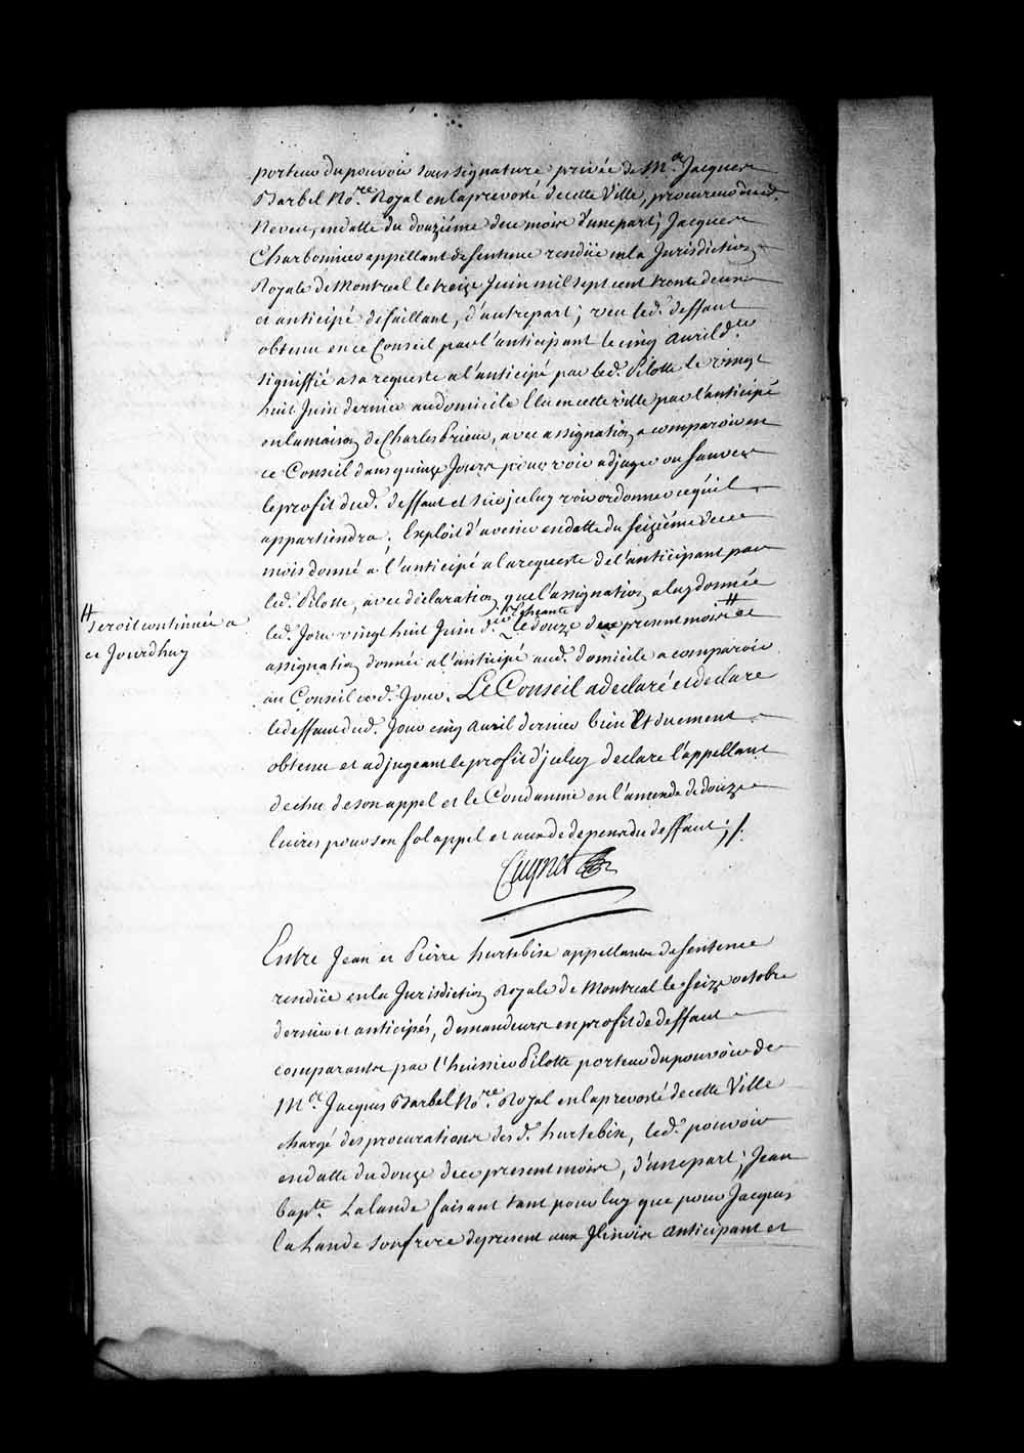 porteur du pouvoir sous signature privée de M.e Jacques
Barbel No.re Royal en la prevosté de cette Ville, procureur dud.
Neveu, en datte du douziéme de ce mois d'une part; Jacques
Charbonnier appellant de sentence rendüe en la Jurisdiction
Royale de Montreal le treize Juin mil sept cent trente deux
et anticipé defaillant, d'autre part; veu led. deffaut
obtenu en ce Conseil par l'anticipant le cinq avril d.er
signiffié a sa requeste a l'anticipé par led. Pilotte le vingt
huit Juin dernier au domicile Elu en cette ville par l'anticipé
en la maison de Charles Prieur, avec assignation a comparoir en
ce Conseil dans quinze Jours pour voir adjuger ou sauver
le profit dud. deffaut et sur jceluy voir ordonner ce qu'il
appartiendra; Exploit d'avenir en datte du seiziéme de ce
mois donné a l'anticipé a la requeste de l'anticipant par
led. Pilotte, avec déclaration que l'assignation a luy donnée
led. Jour vingt huit Juin d.er Echeante le douze du present mois #
# seroit continuée a
ce Jourdhuy
et
assignation donnée a l'anticipé aud. domicile a comparoir
au Conseil ced. Jour. Le Conseil a declaré et declare
le deffaut dud. Jour cinq avril dernier bien Et duement
obtenu et adjugeant le profit d'jceluy declare l'appellant
dechu de son appel et le Condamne en l'amende de douze
livres pour son fol appel et aux de depens du deffaut;/.
Cugnet
Entre Jean et Pierre hurtebise appellants de sentence
rendüe en la Jurisdiction Royale de Montreal le seize octobre
dernier et anticipés, demandeurs en profit de deffaut
comparants par l'huissier Pilotte porteur du pouvoir de
M.e Jacques Barbel No.re Royal en la prevosté de cette Ville
chargé des procurations des d. hurtebise, led. pouvoir
en datte du douze de ce present mois, d'une part; Jean
bap.te Lalande faisant tant pour luy que pour Jacques
la Lande son frere de present aux Jlinois anticipant et